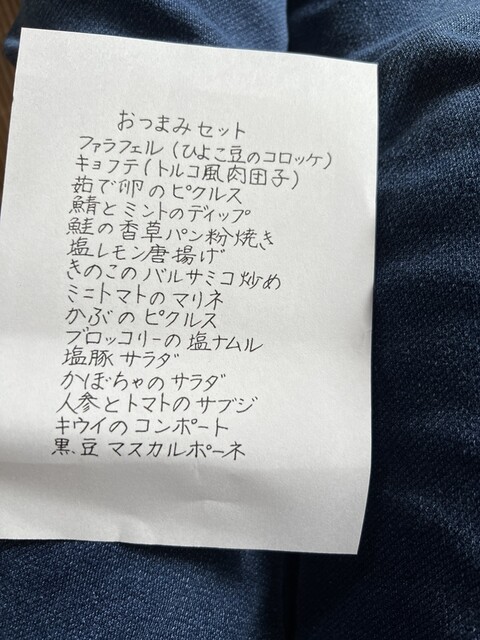 おつまみセット
ファラフェル（ひよこ豆のコロッケ）
キョフテ（トルコ風肉団子）
茹で卵のピクルス
鯖とミントのディップ
鮭の香草パン粉焼き
塩レモン唐揚げ
きのこのバルサミコ炒め
ミニトマトのマリネ
かぶのピクルス
ブロッコリーの塩ナムル
塩豚サラダ
かぼちゃのサラダ
人参とトマトのサブジ
キウイのコンポート
黒豆マスカルポーネ